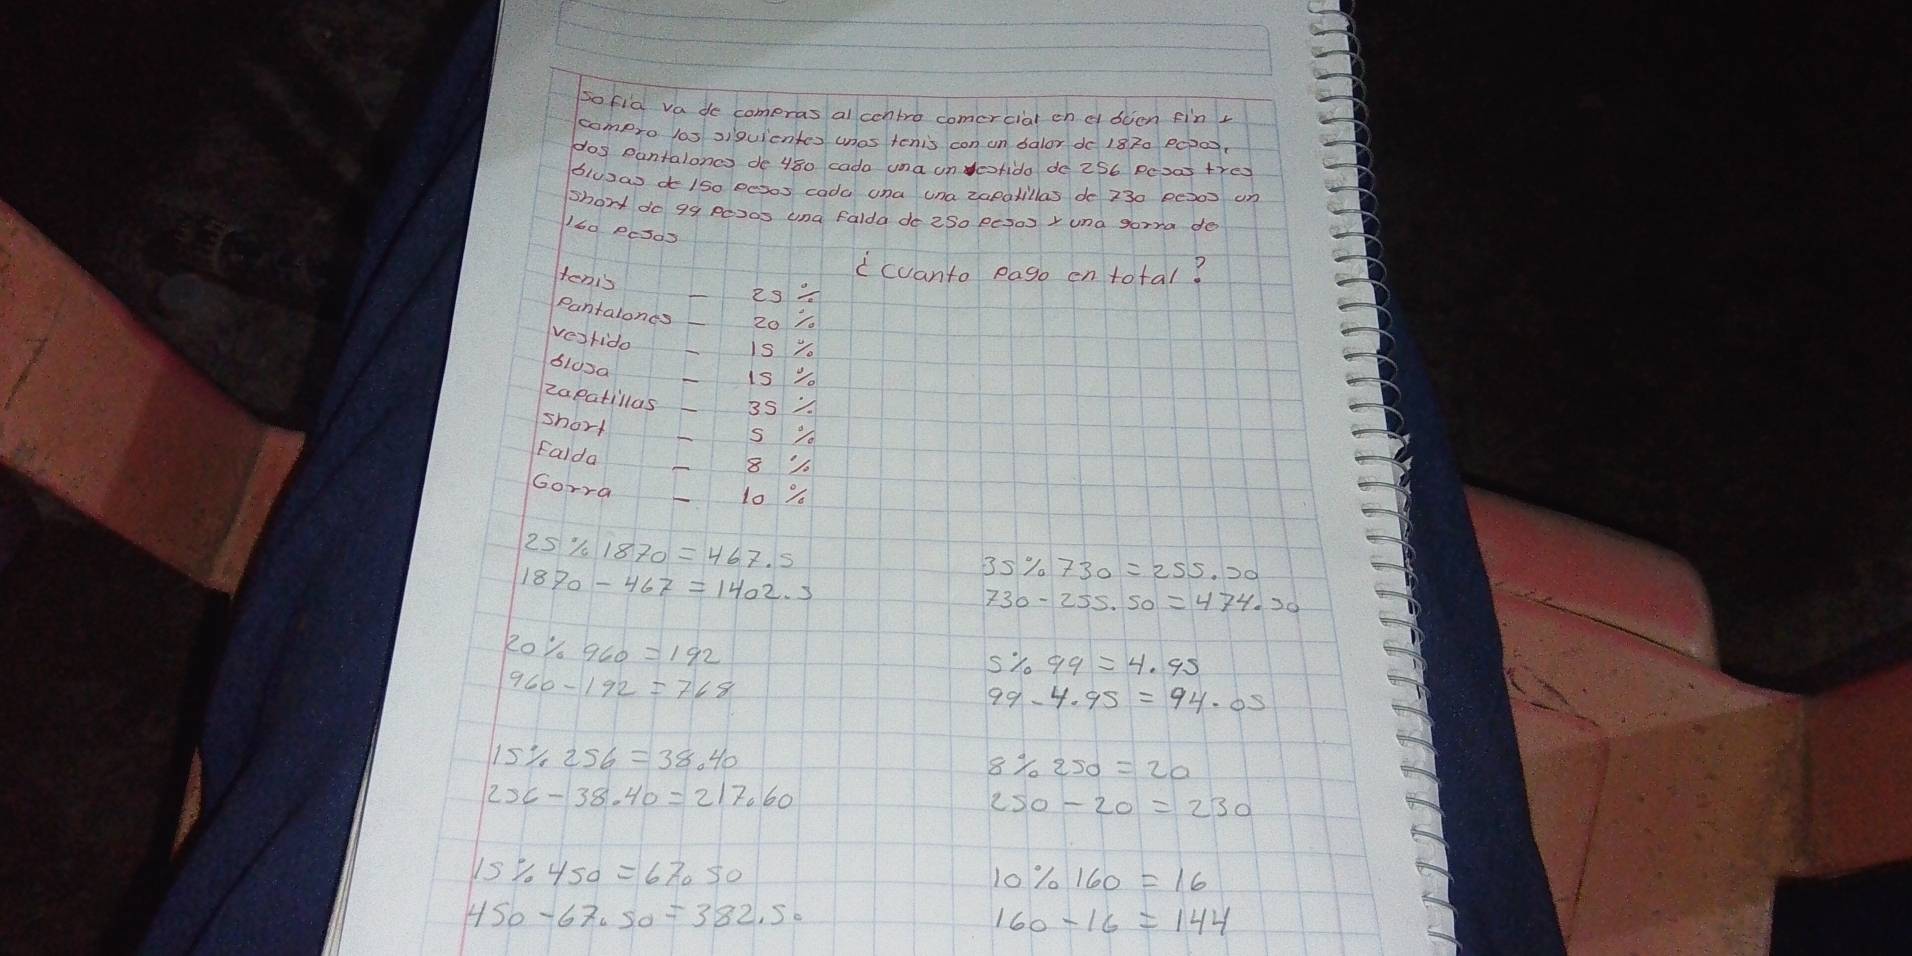 sofia va de compras al centro comercial en el buen fin y
compro los siguientes unos tenis con un balor de 1870 pesos,
dos pantalones de 480 cada una un vestido de 256 pesos tres
blusas de 150 pesos cada una una zapatillas de 730 pesos un
short de 99 pesos una falda de 250 pesos y una gorra de
160 pesos
¿cuanto pago en total?
tenis - 25 %
pantalones - 20 %
vestido - 15 %
blusa - 15 %
zapatillas - 35 %
short - 5 %
Falda - 8 %
Gorra - 10 %
25% 1870 = 467.5
1870 - 467 = 1402.5
20% 960 = 192
960 - 192 = 768
15% 256 = 38.40
256 - 38.40 = 217.60
15% 450 = 67.50
450 - 67.50 = 382.50
35% 730 = 255.50
730 - 255.50 = 474.50
5% 99 = 4.95
99 - 4.95 = 94.05
8% 250 = 20
250 - 20 = 230
10% 160 = 16
160 - 16 = 144